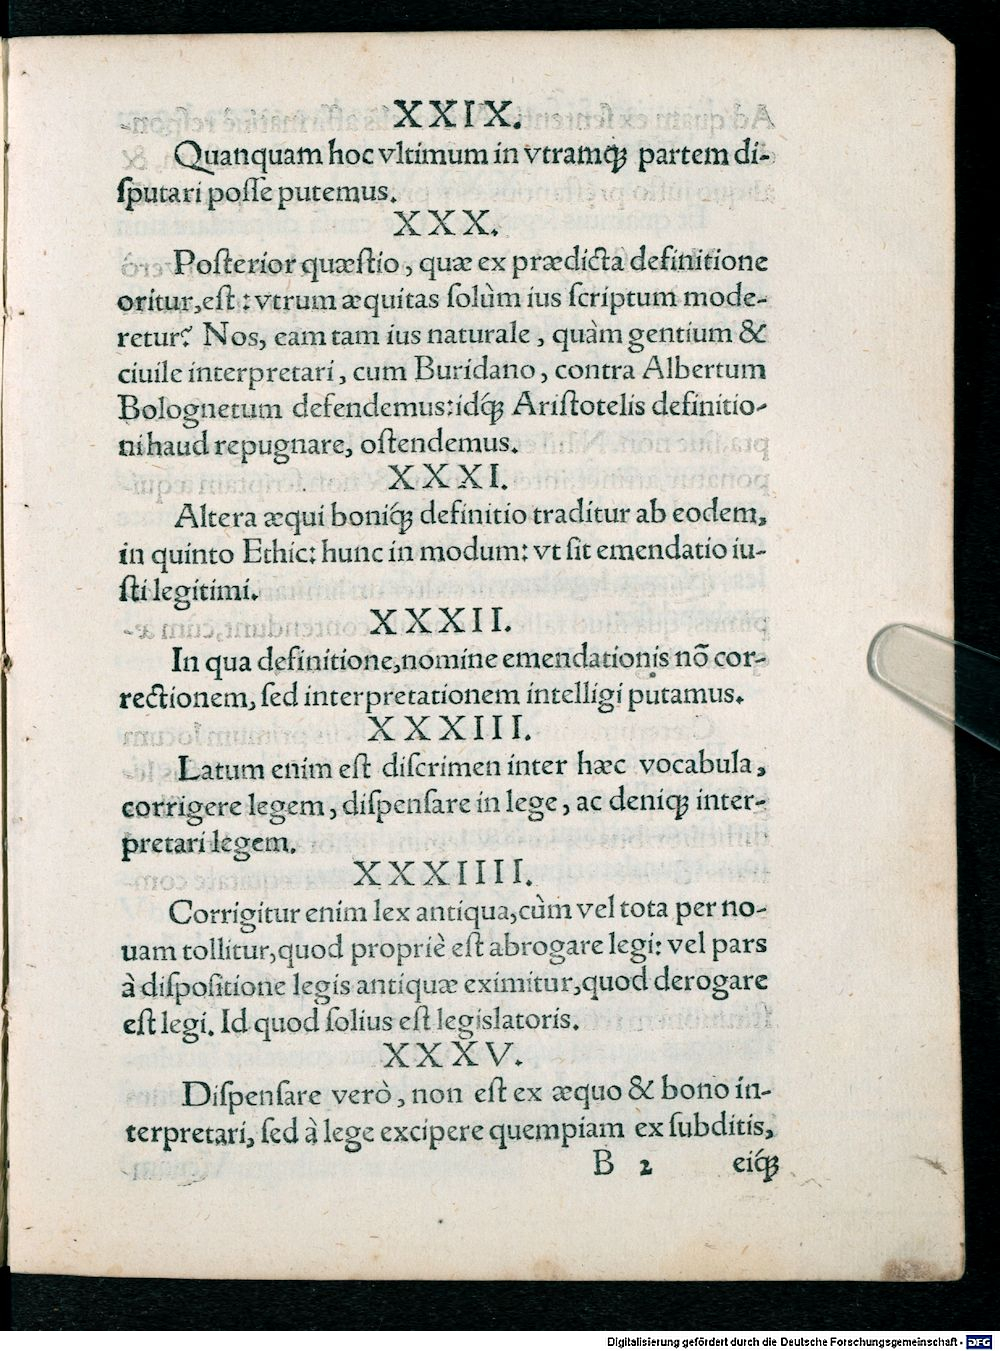 XXIX.
Quanquam hoc vltimum in vtramq́; partem di-
ſputari poſſe putemus.
XXX.
Poſterior quæſtio, quæ ex prædicta definitione
oritur, eſt: vtrum æquitas ſolùm ius ſcriptum mode-
retur? Nos, eam tam ius naturale, quàm gentium &
ciuile interpretari, cum Buridano, contra Albertum
Bolognetum defendemus: idq́; Ariſtotelis definitio-
ni haud repugnare, oſtendemus.
XXXI.
Altera æqui boniq́; definitio traditur ab eodem,
in quinto Ethic: hunc in modum: vt ſit emendatio iu-
ſti legitimi.
XXXII.
In qua definitione, nomine emendationis nõ cor-
rectionem, ſed interpretationem intelligi putamus.
XXXIII.
Latum enim eſt diſcrimen inter hæc vocabula,
corrigere legem, diſpenſare in lege, ac deniq́; inter-
pretari legem.
XXXIIII.
Corrigitur enim lex antiqua, cùm vel tota per no-
uam tollitur, quod propriè eſt abrogare legi: vel pars
à diſpoſitione legis antiquæ eximitur, quod derogare
eſt legi. Id quod ſolius eſt legislatoris.
XXXV.
Diſpenſare verò, non eſt ex æquo & bono in-
terpretari, ſed à lege excipere quempiam ex ſubditis,
B 2 eiq́;
Digitalisierung gefördert durch die Deutsche Forschungsgemeinschaft - DFG